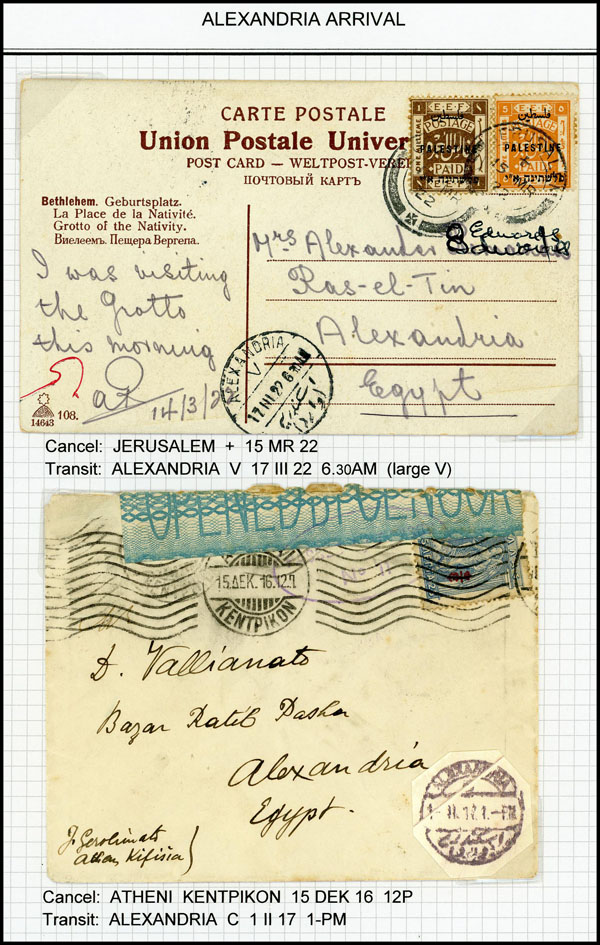 ALEXANDRIA ARRIVAL
CARTE POSTALE
Union Postale Univer
POST CARD — WELTPOST-VEREI
ПОЧТОВЫЙ КАРТЪ
E.E.F.
POSTAGE
PALESTINE
PAID
E.E.F.
فلسطين
PALESTINE
PAID
15 MR
Bethlehem. Geburtsplatz.
La Place de la Nativité.
Grotto of the Nativity.
Виелеемъ. Пещера Вергепа.
I was visiting
the Grotto
this morning
14/3/2
108.
14643
Mrs Alexander
Edwards
Ras-el-Tin
Alexandria
Egypt
ALEXANDRIA
V
17 III 22 6.30AM
Cancel: JERUSALEM + 15 MR 22
Transit: ALEXANDRIA V 17 III 22 6.30AM (large V)
OPENED BY CENSOR
15.ΔΕΚ.16.12
ΚΕΝΤΡΙΚΟΝ
D. Vallianato
Bazar Ratib Pasha
Alexandria
Egypt.
J. Gerolimato
Kifisia
ALEXANDRIA
1-PM
Cancel: ATHENI KENTPIKON 15 DEK 16 12P
Transit: ALEXANDRIA C 1 II 17 1-PM